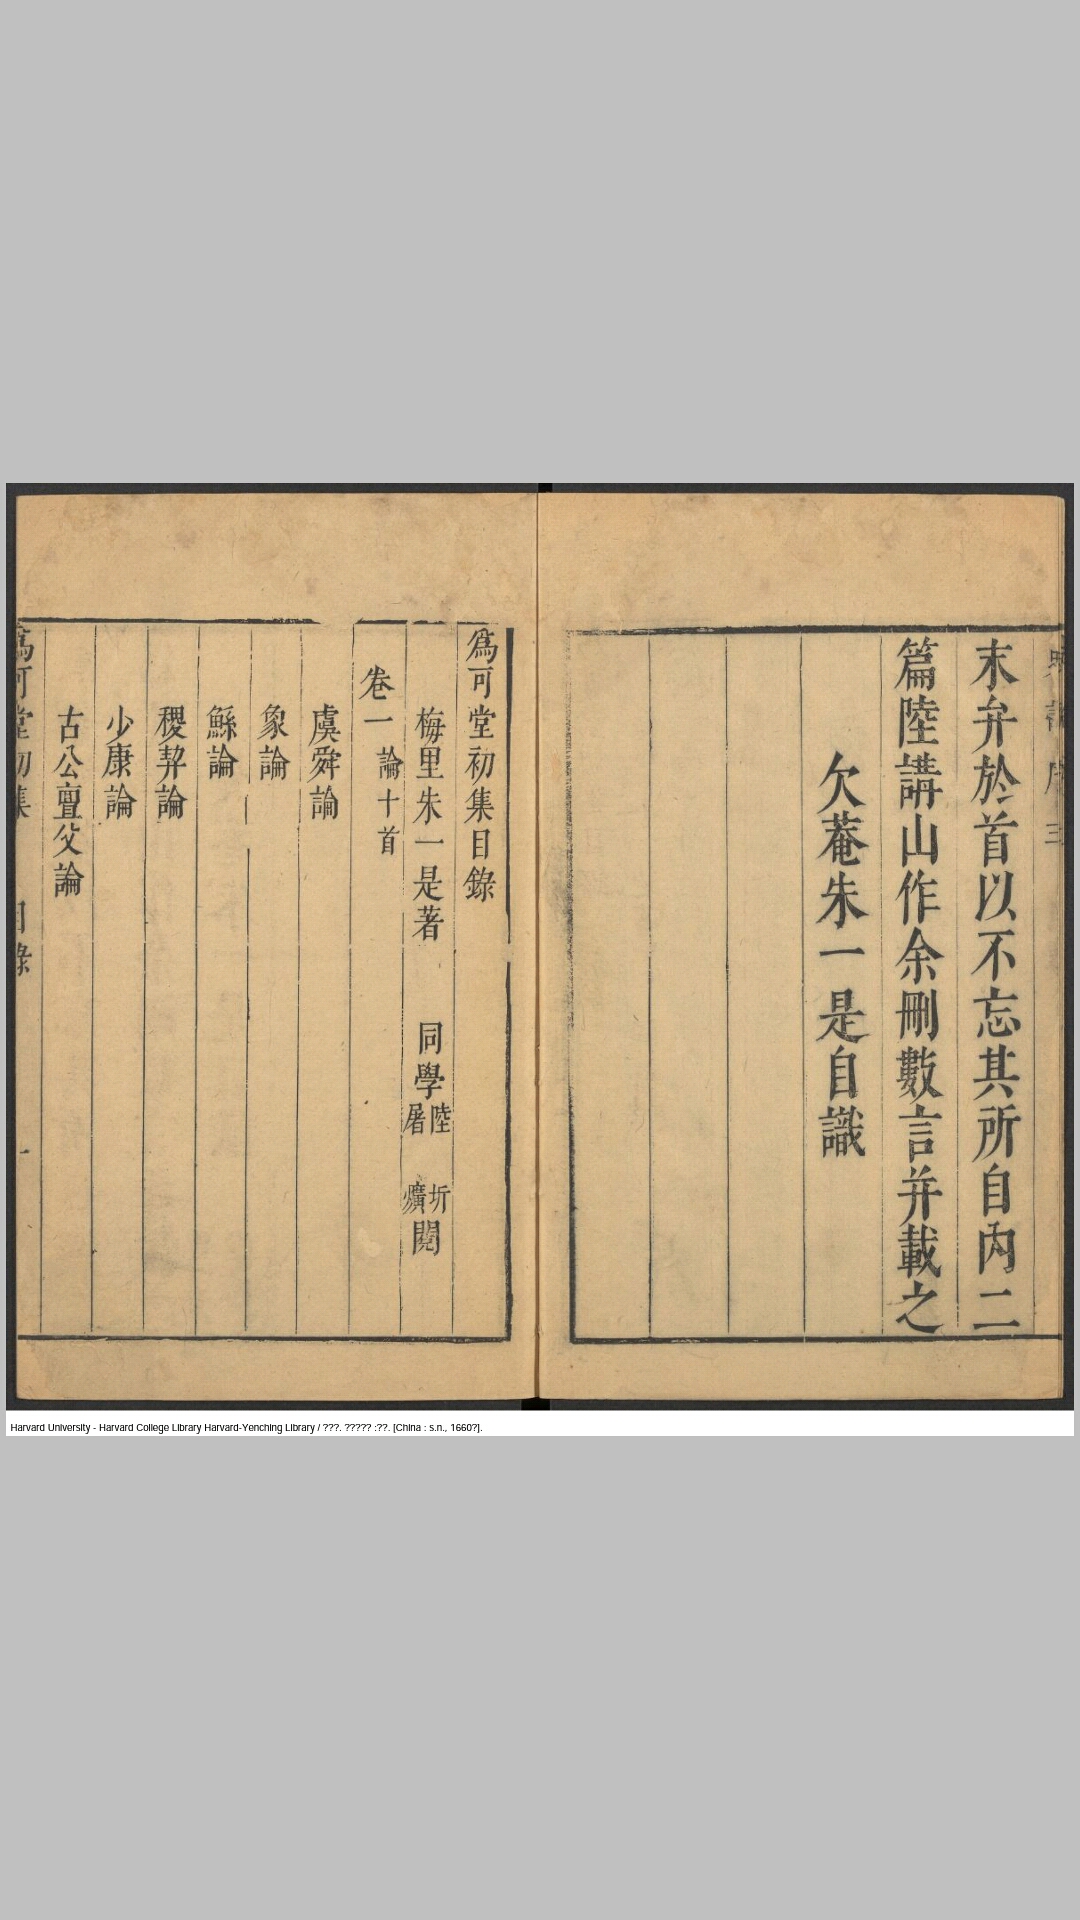 末弁於首以不忘其所自內二
篇陸講山作余刪數言并載之
欠菴朱一是自識
為可堂初集目錄
梅里朱一是著 同學陸圻屠爌閱
卷一 論十首
虞舜論
象論
鯀論
稷契論
少康論
古公亶父論
為可堂初集 目錄 一
Harvard University - Harvard College Library Harvard-Yenching Library / ???. ????? :??. [China : s.n., 1660?].